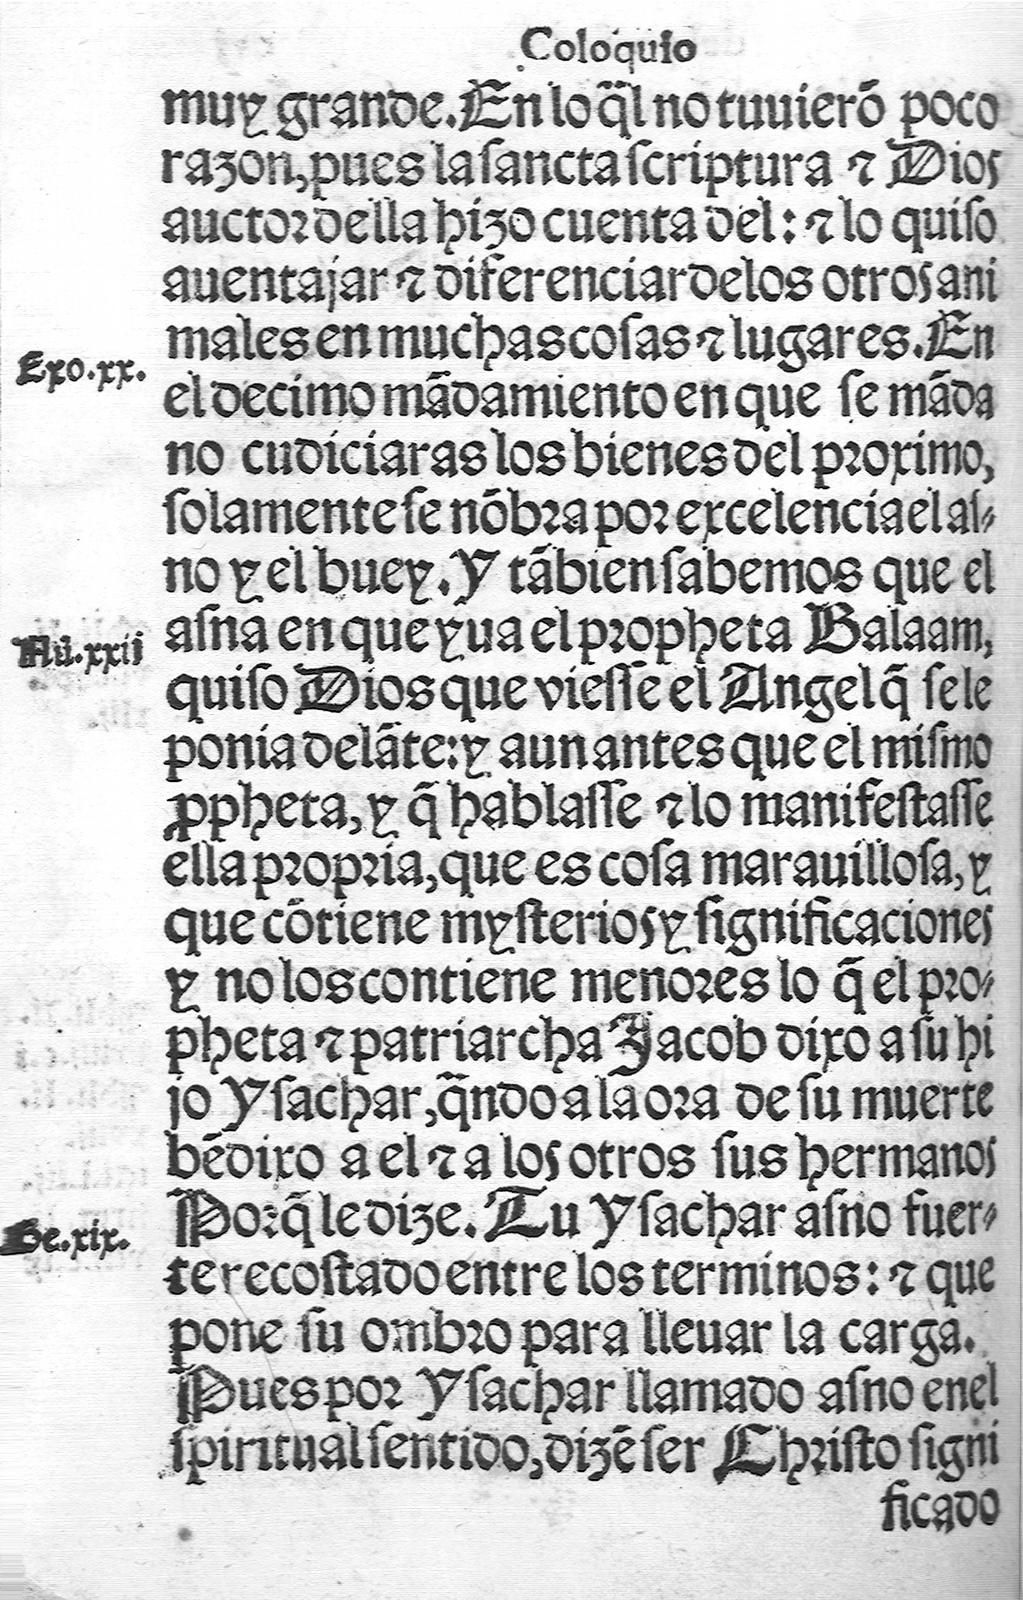 Coloquio
muy grande. En lo q̃l no tuuierõ poco
razon, pues la sancta scriptura ⁊ Dios
auctor della hizo cuenta del: ⁊ lo quiso
auentajar ⁊ diferenciar de los otros ani
males en muchas cosas ⁊ lugares. En
Exo.xx.
el decimo mãdamiento en que se mãda
no cudiciaras los bienes del proximo,
solamente se nõbra por excelencia el as-
no y el buey. Y tãbien sabemos que el
Nu.xxij
asna en que yua el propheta Balaam,
quiso Dios que viesse el Angel q̃ se le
ponia delãte: y aun antes que el mismo
ꝓpheta, y q̃ hablasse ⁊ lo manifestasse
ella propria, que es cosa marauillosa, y
que cõtiene mysterios y significaciones
y no los contiene menores lo q̃ el pro-
pheta ⁊ patriarcha Jacob dixo a su hi
jo Ysachar, q̃ndo a la ora de su muerte
bẽdixo a el ⁊ a los otros sus hermanos
Ge.xix.
Porq̃ le dize. Tu Ysachar asno fuer-
te recostado entre los terminos: ⁊ que
pone su ombro para lleuar la carga.
Pues por Ysachar llamado asno enel
spiritual sentido, dizẽ ser Christo signi
ficado